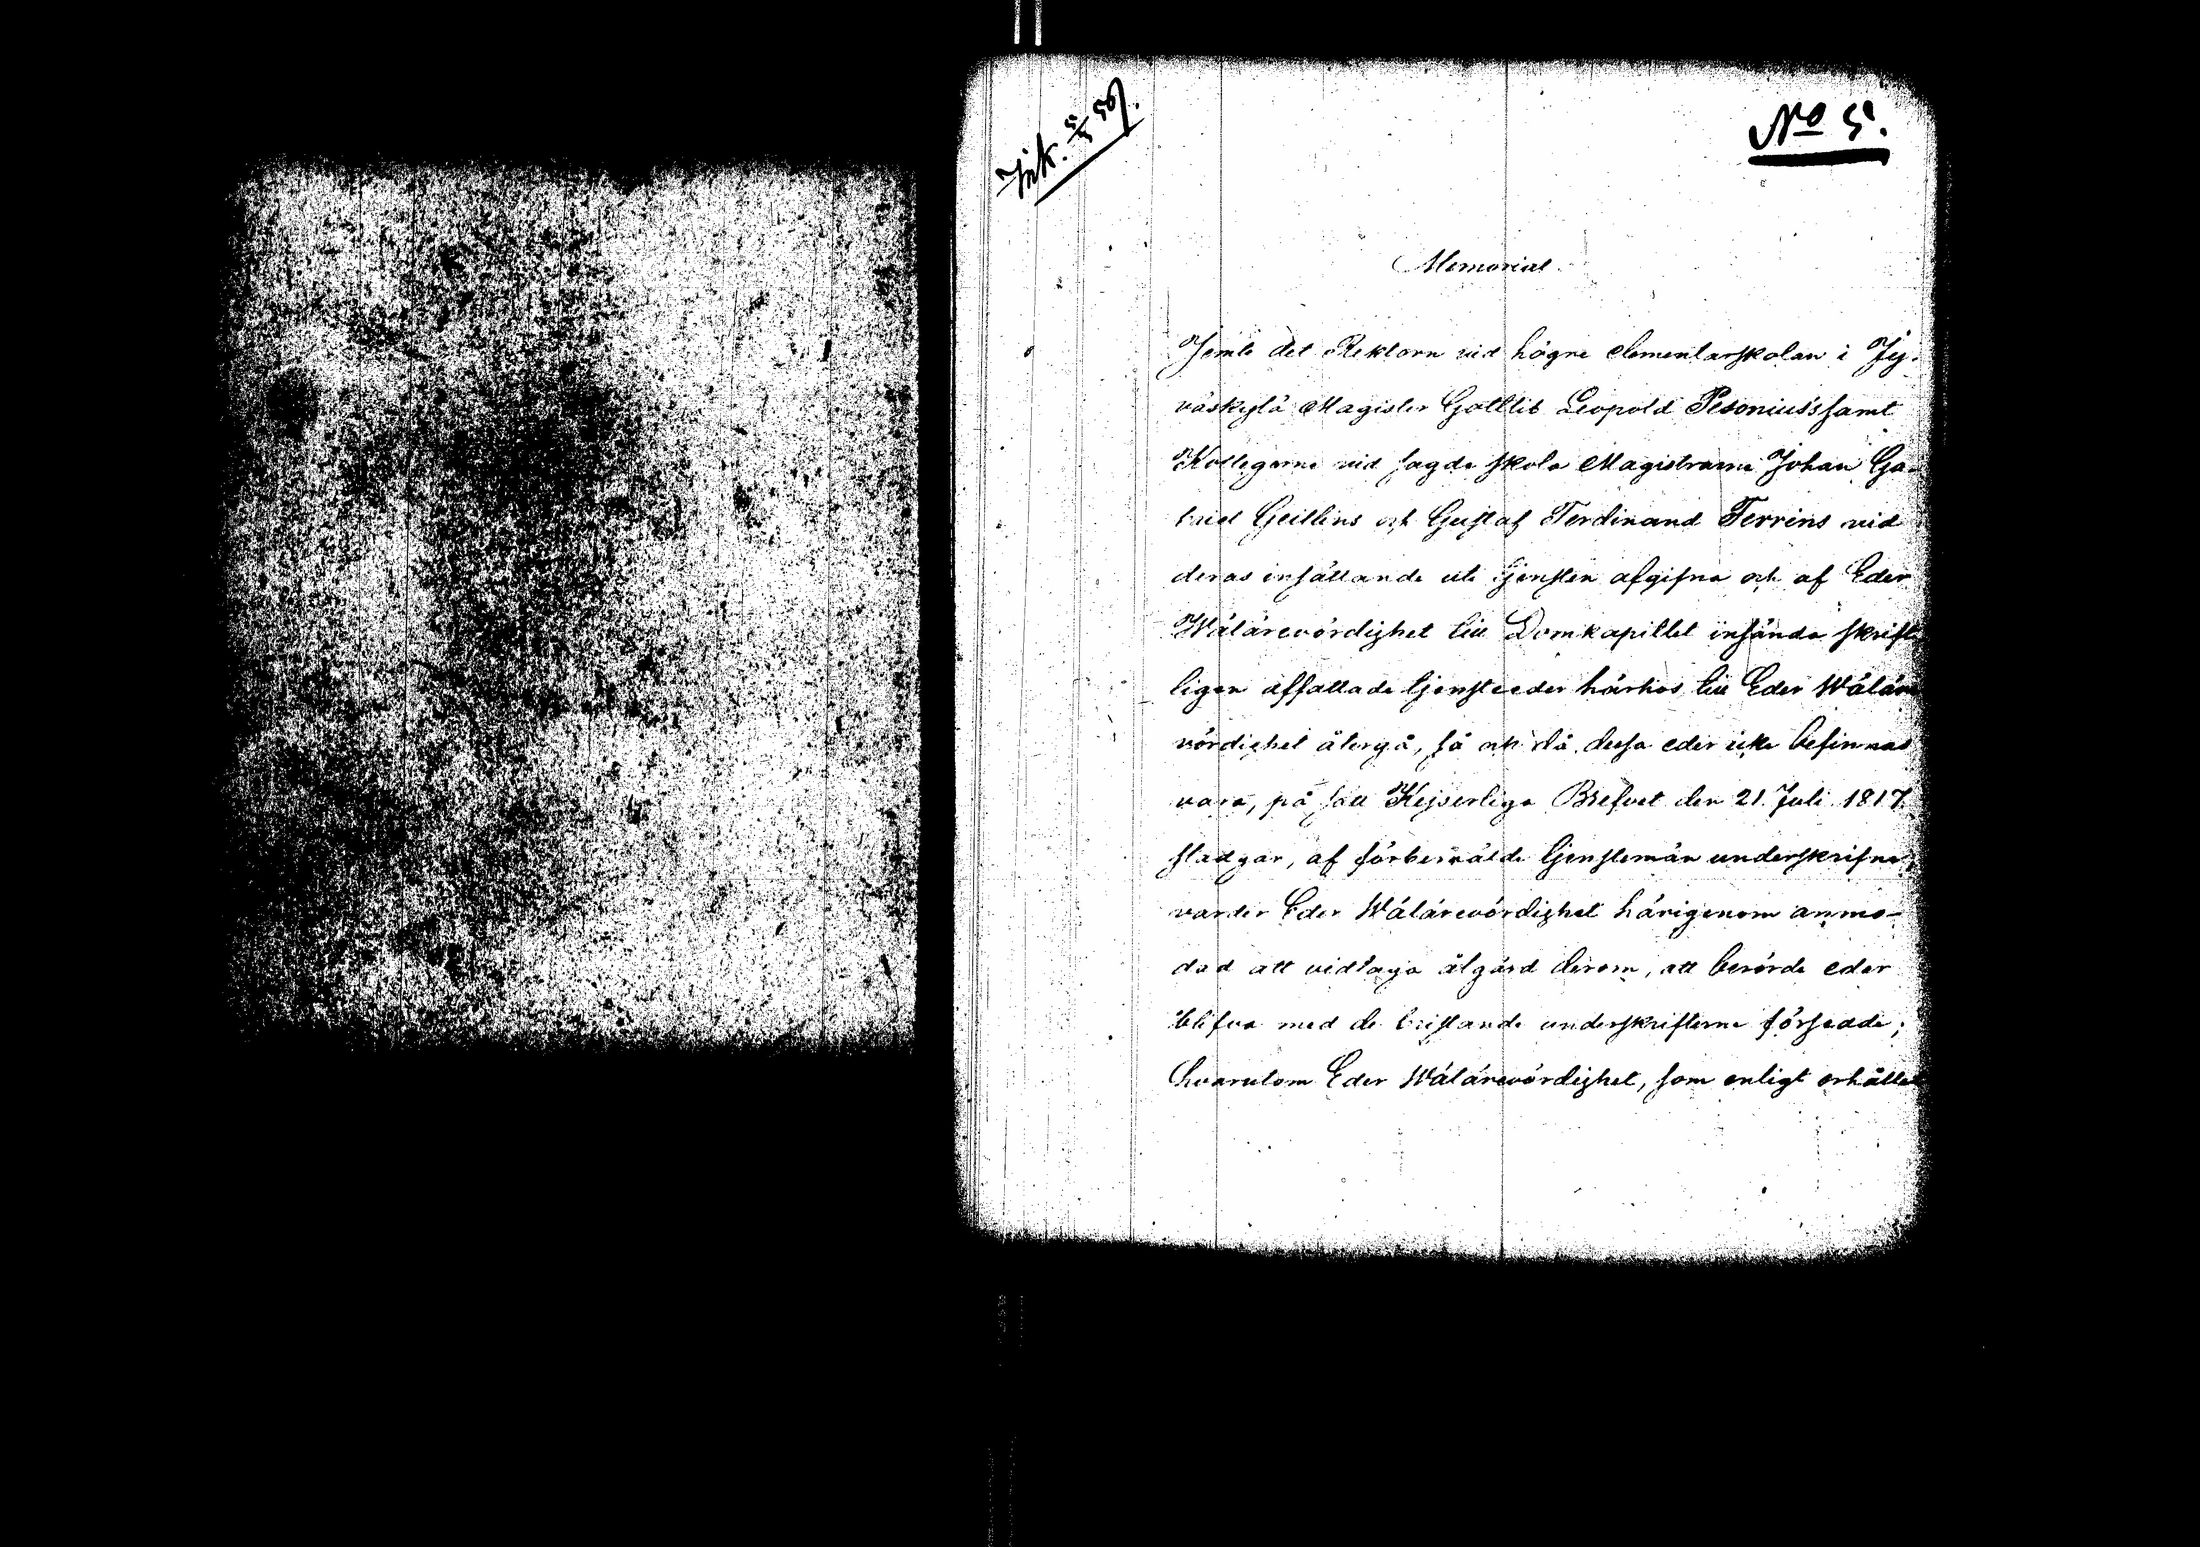 Ink. 5/5 56.
No 5.
Memorial.
Jemte det Rektorn vid högre elementarskolan i Jy-
väskylä Magister Gottlib Leopold Pesonius's samt
Kollegerne vid sagde skola Magistrarne Johan Ga-
briel Geitlins och Gustaf Ferdinand Ferrins vid
deras inställande uti tjensten afgifna och af Eder
Wälärevördighet till Domkapitlet insände skrift-
ligen affattade tjensteeder härhos till Eder Wäläre
vördighet återgå, så och då dessa eder icke befinnas
vara, på sätt Kejserliga Brefvet den 21 Juli 1817
stadgar, af förberörde Tjenstemän underskrifne,
varder Eder Wälärevördighet härigenom anmo-
dad att vidtaga åtgärd derom, att berörde eder
blifva med de bristande underskrifterne försedde;
hvarutom Eder Wälärevördighet, som enligt erhållet